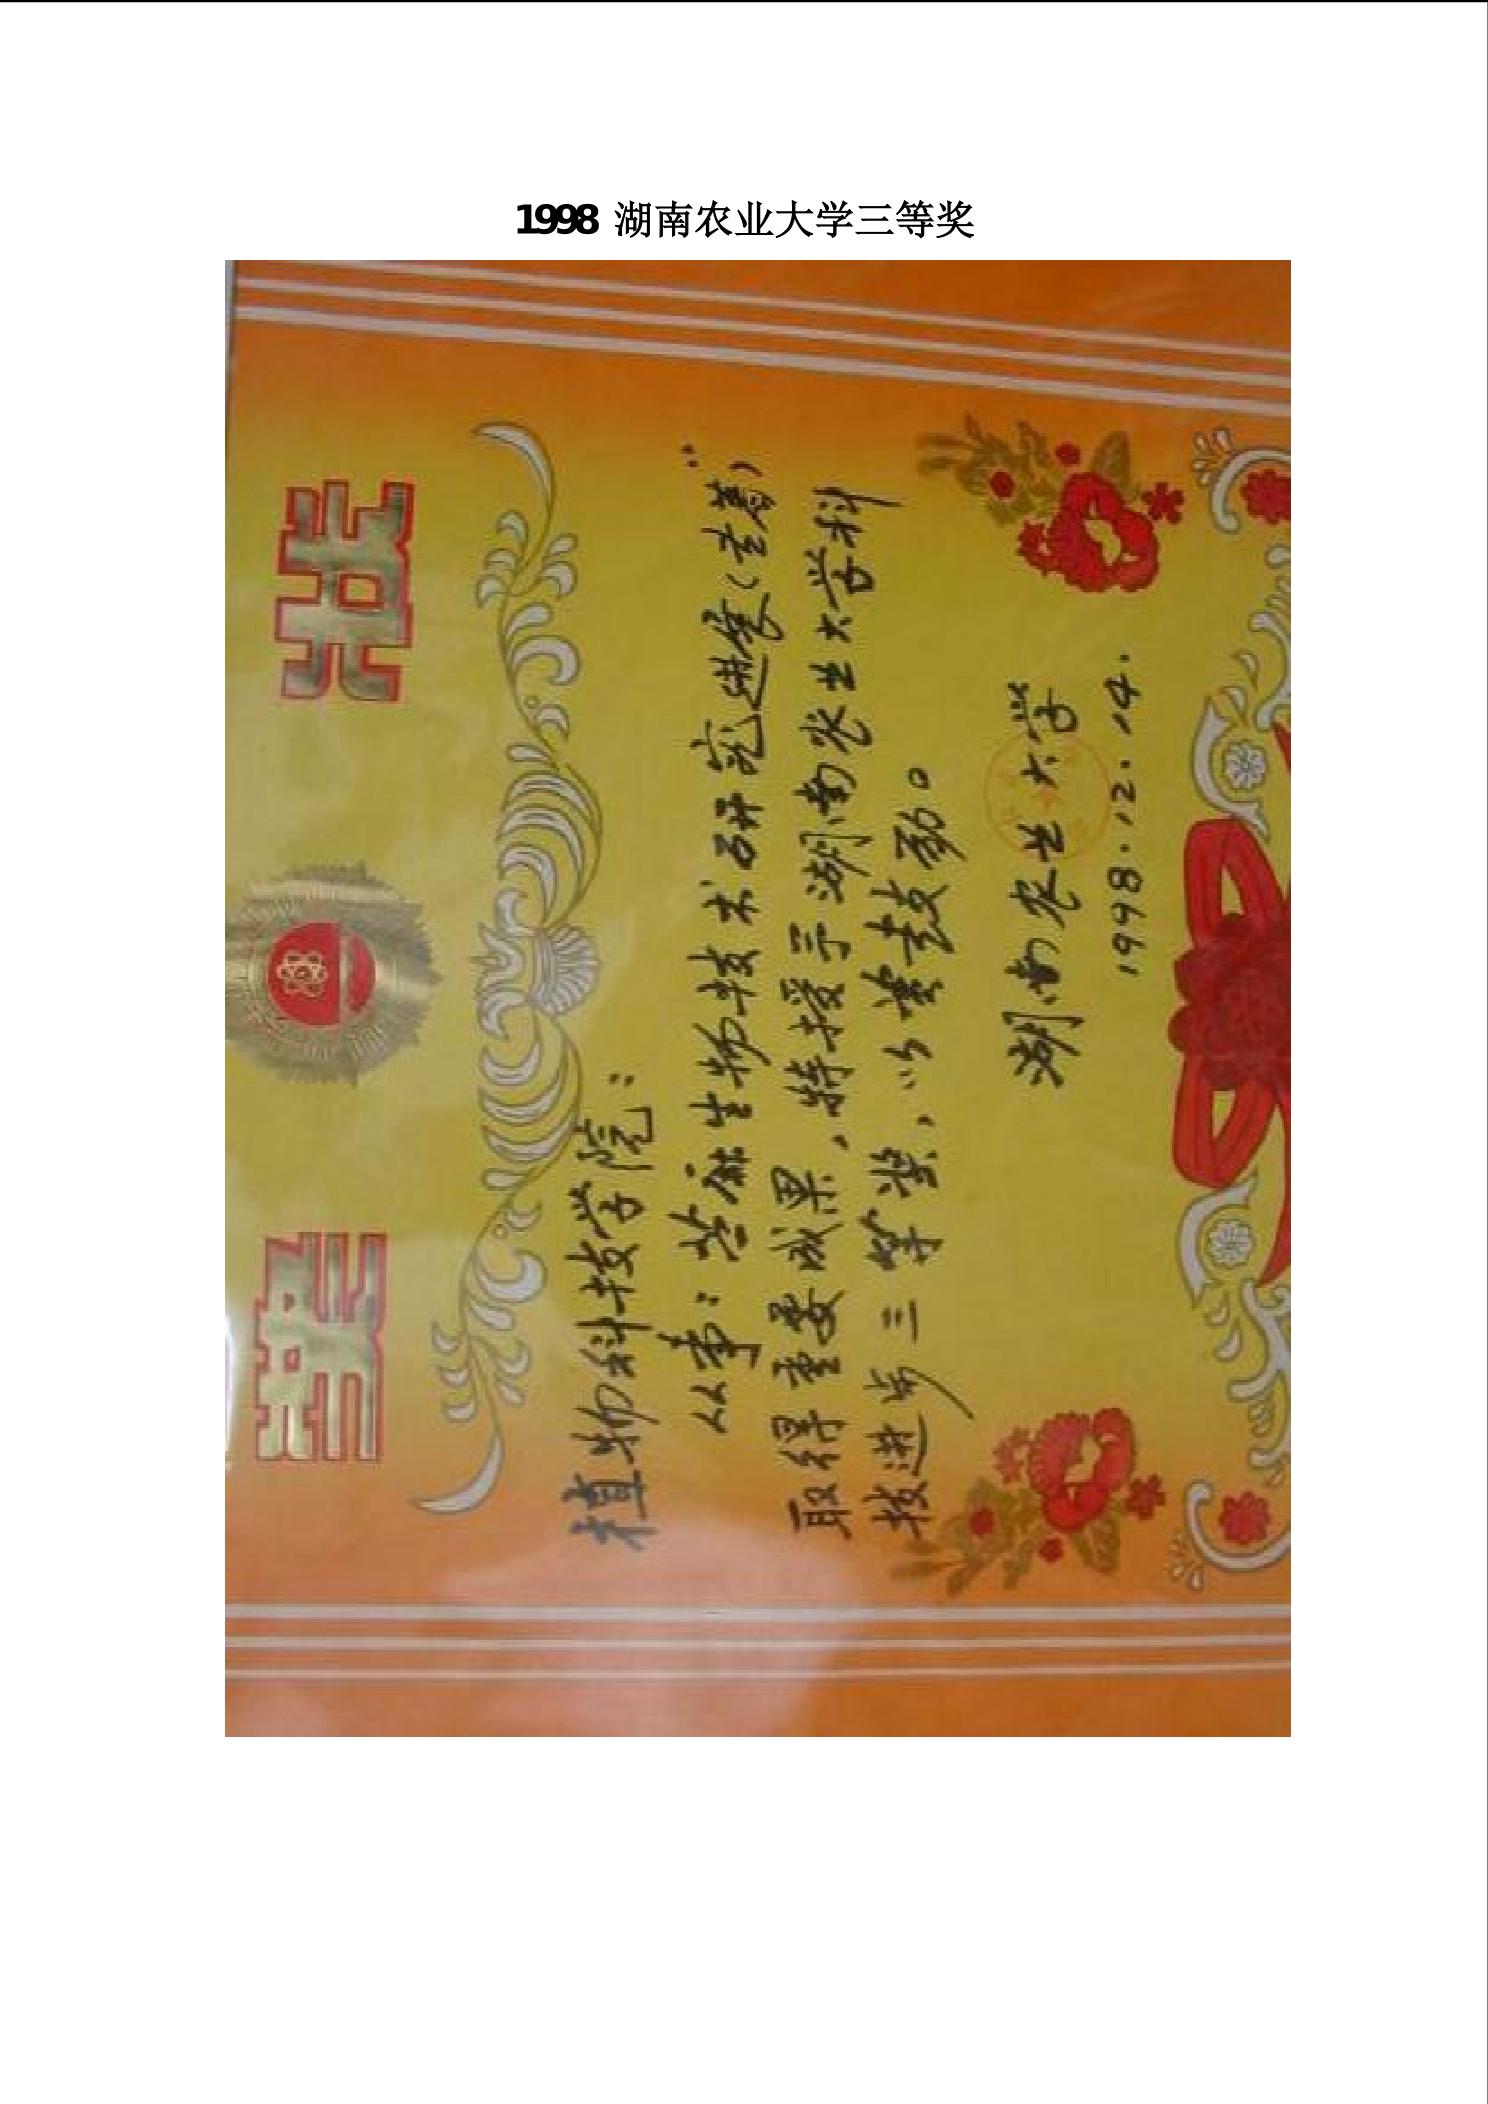 1998 湖南农业大学三等奖
奖 状
植物科技学院：
从事：苎麻生物技术研究进展（专著）"
取得重要成果，特授予湖南农业大学科
技进步三等奖，以资鼓励。
湖南农业大学
1998.12.14.